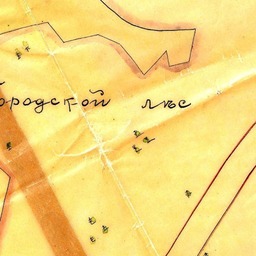 ородской лѣс